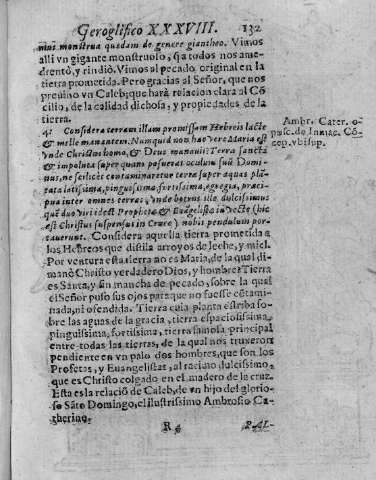 Geroglifico XXXVIII. 132
nius monstrua quædam de genere giantheo. Vimos
alli vn gigante monstruoso, q̃ a todos nos ame-
drentò, y rindiò. Vimos al pecado original en la
tierra prometida. Pero gracias al Señor, que nos
preuino vn Caleb; que harà relacion clara al Cõ
cilio, de la calidad dichosa, y propiedades de la
tierra.
4. Considera terram illam promissam Hebreis lacte
& melle manantem. Nunquid non hæc vere Maria est
vnde Christus homo, & Deus manauit: Terra sancta
& impoluta super quam posuerat oculum suũ Domi-
nus, ne scilicet contaminaretur terra super aquas plã-
tata latissima, pinguissima fortissima, egregia, præci-
pua inter omnes terras; vnde botrus ille dulcissimus
quē duo viri idest Prophetæ & Euãgelistæ in vecte (hic
est Christus suspensus in Cruce) nobis pendulum por-
tauerunt. Considera aquella tierra prometida a
los Hebreos que distila arroyos de leche, y miel.
Por ventura esta tierra no es Maria, de la qual di-
manò Christo verdadero Dios, y hombre? Tierra
es Santa, y sin mancha de pecado, sobre la qual
el Señor puso sus ojos para que no fuesse cõtami-
nada, ni ofendida. Tierra cuia planta estriba so-
bre las aguas de la gracia, tierra espaciosissima,
pinguissima, fortissima, tierra famosa principal
entre todas las tierras, de la qual nos truxeron
pendiente en vn palo dos hombres, que son los
Profetas, y Euangelistas, al racimo dulcissimo,
que es Christo colgado en el madero de la cruz.
Esta es la relaciõ de Caleb, de vn hijo del glorio-
so Sãto Domingo, el ilustrissimo Ambrosio Ca-
therino.
R 4 PAL-
Ambr. Cater. o-
pusc. de Inmac. Cõ
cep. vbi sup.